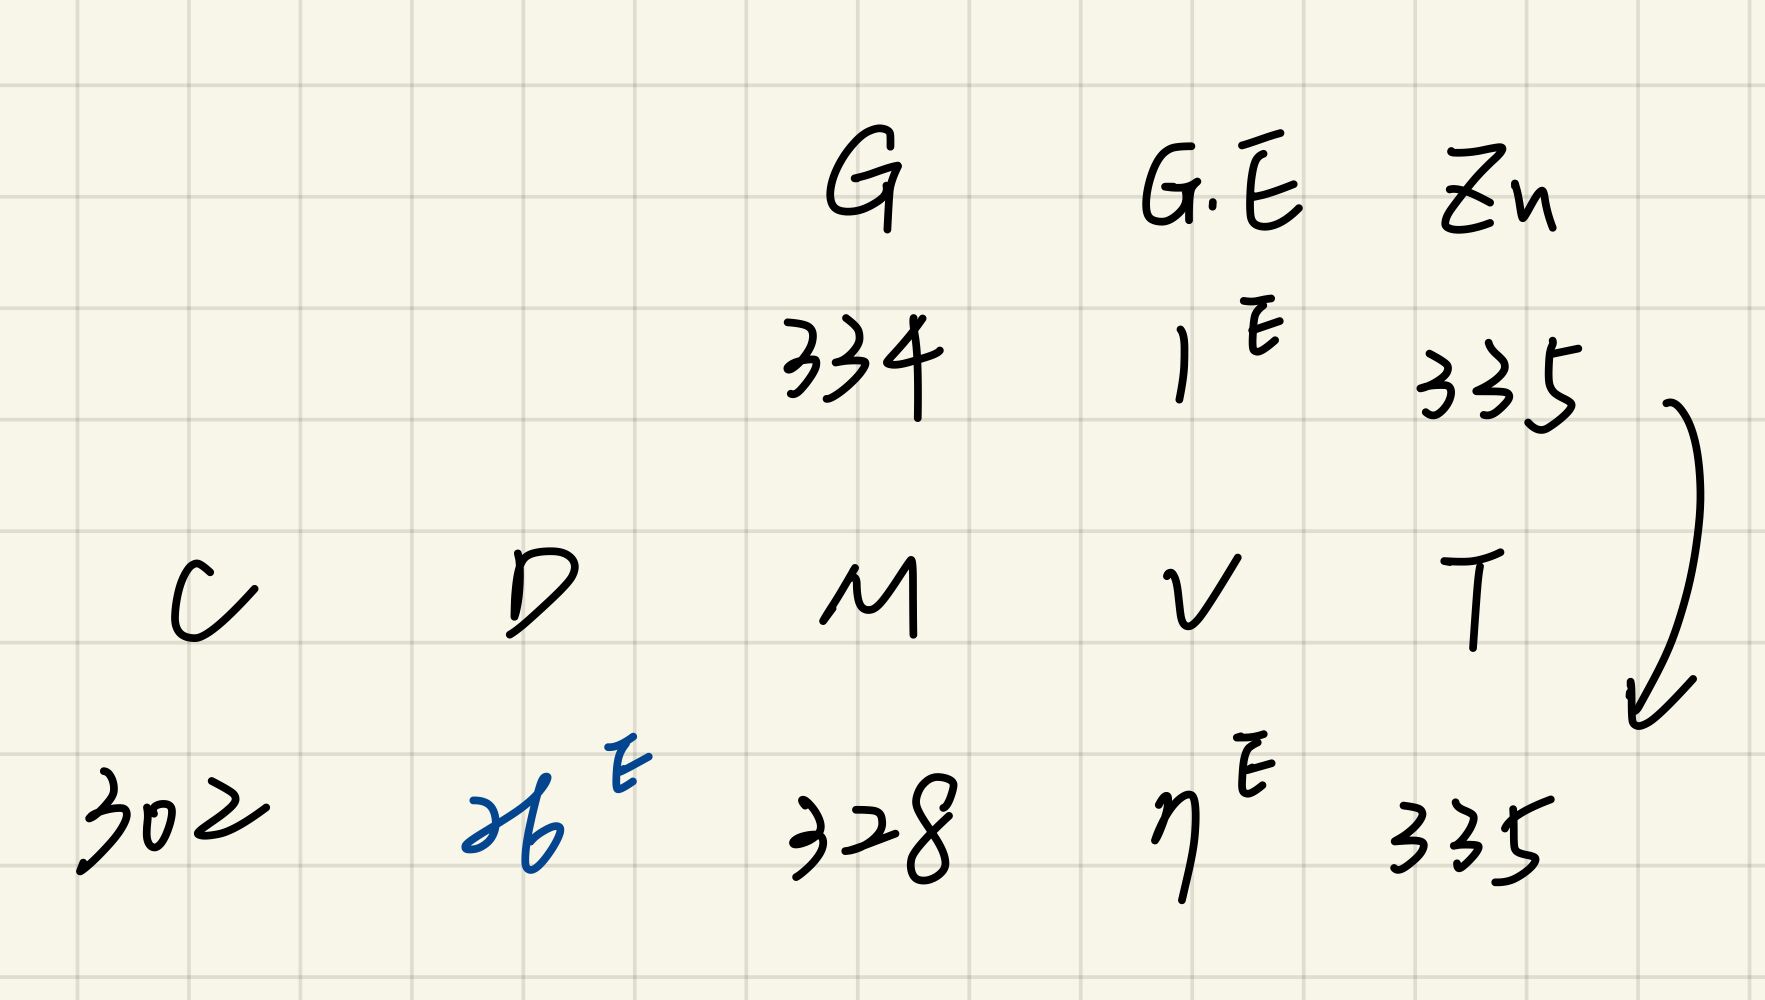 G G.E Zn
334 1ᴱ 335
C D M V T
302 26ᴱ 328 7ᴱ 335